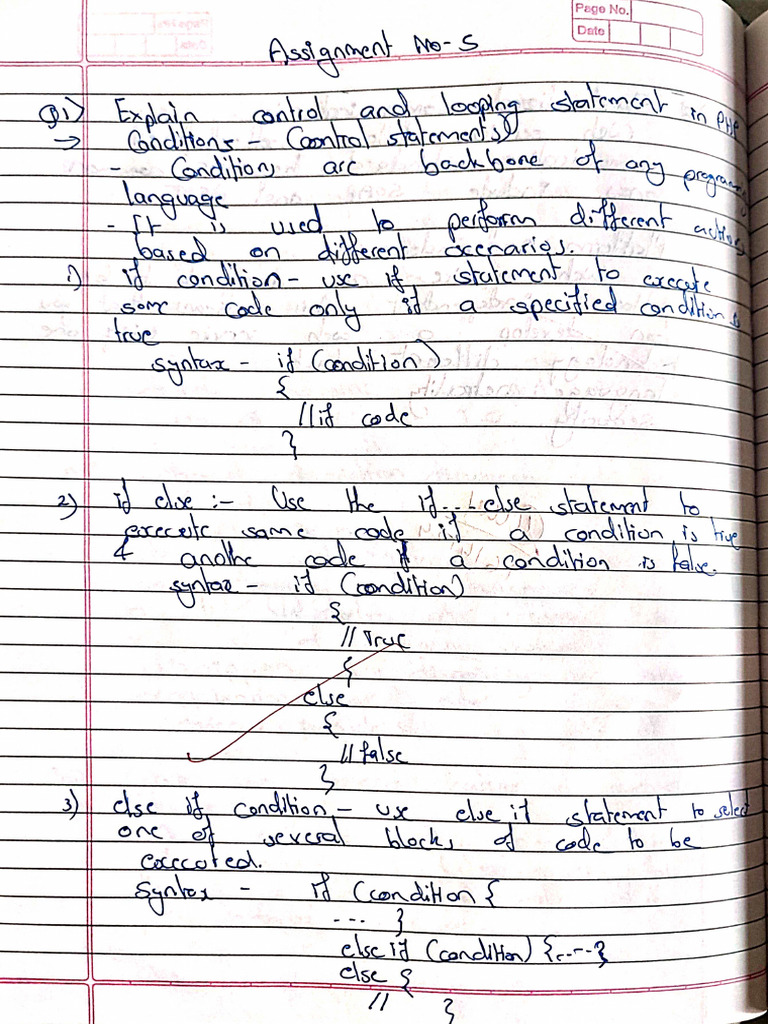 Page No.
Date
Assignment No-5
Q1) Explain control and looping statement in PHP
→ Conditions - (Control statements)
- Conditions are backbone of any
language
- It is used to perform different actions
based on different scenarios.
1) if condition - use if statement to execute
some code only if a specified condition is
true
syntax - if (condition)
{
//if code
}
2) if else :- Use the if...else statement to
execute some code if a condition is true
& anothe code if a condition is false.
syntax - if (condition)
{
// True
{
else
{
// false
}
3) else if condition - use else if statement to select
one of several blocks of code to be
executed.
syntax - if (condition {
--- }
else if (condition) {----}
else {
//
}